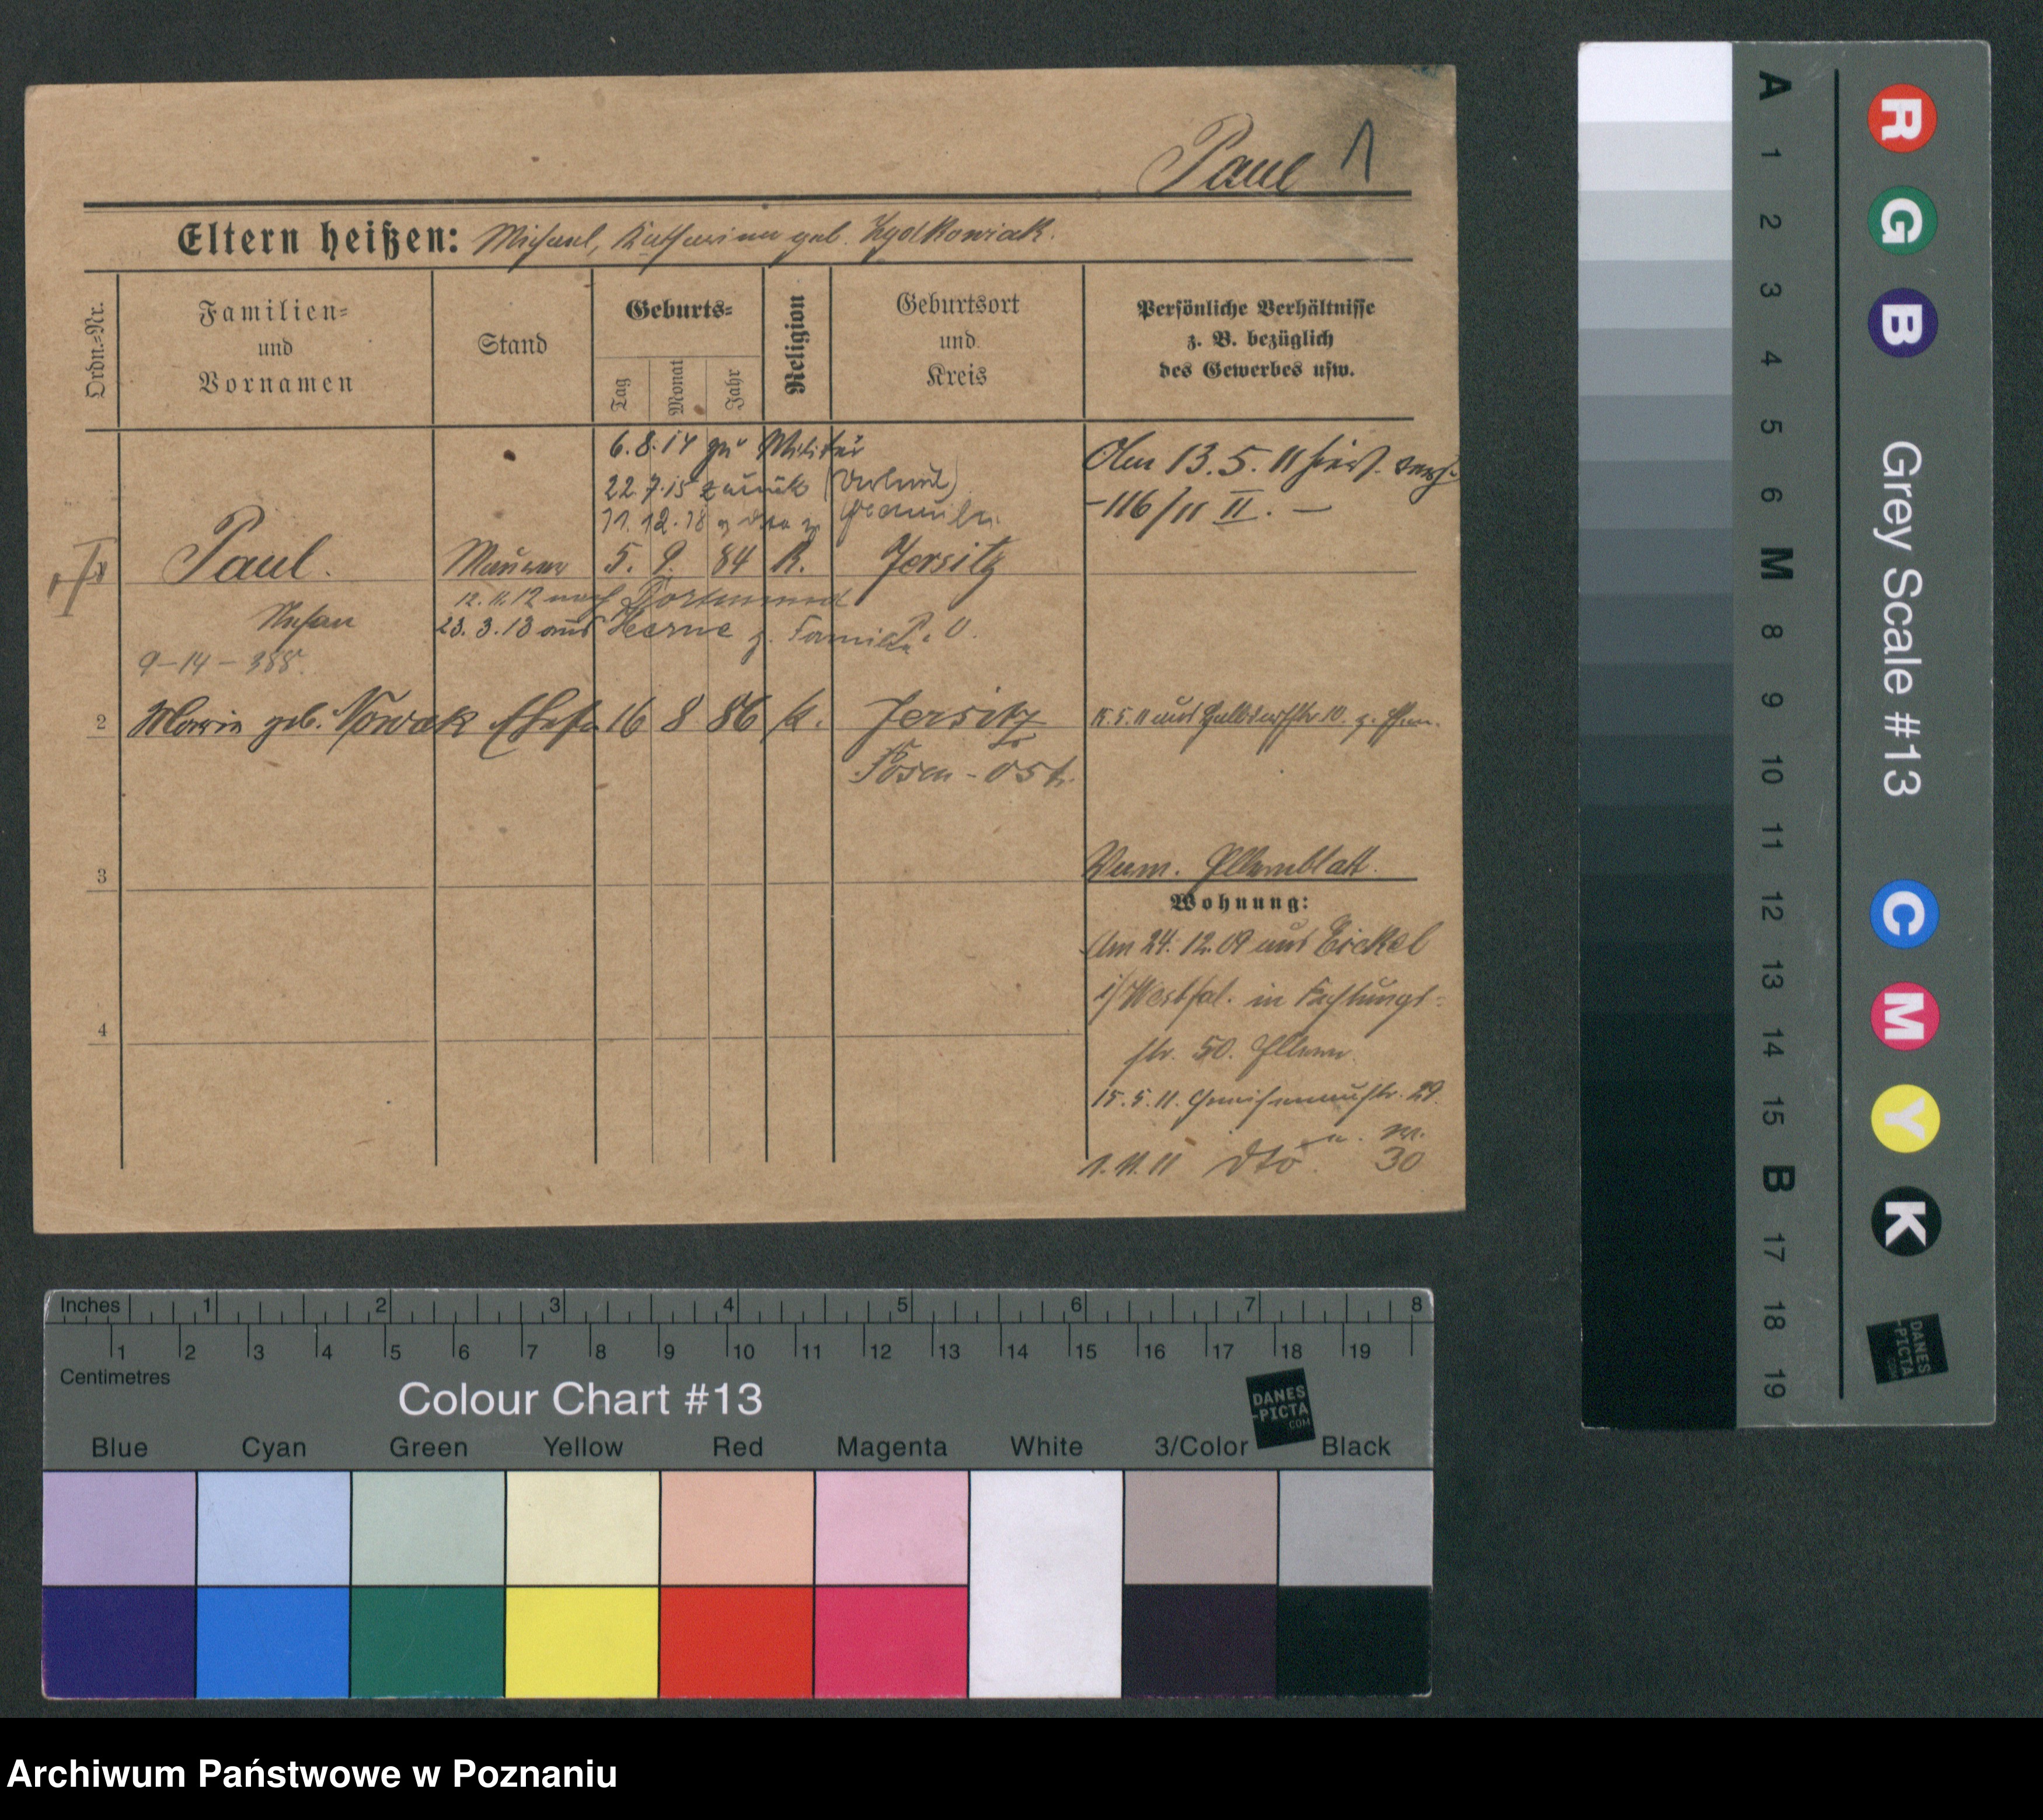 Paul 1
Eltern heißen: Michael, Katharina geb. Zydkowiak.
Ordn.-Nr.
Familien- und Vornamen
Stand
Geburts-
Tag
Monat
Jahr
Religion
Geburtsort und Kreis
Persönliche Verhältnisse z. B. bezüglich des Gewerbes usw.
6.8.14 zu Militär
22.7.15 zurück
11.12.18
Am 13.5.11
-116/11 II. -
Paul. Maurer 5. 9. 84 K. Jersitz
Stefan 12.11.12 nach Dortmund
23.3.13 aus Herne z. Familie
9-14-388.
2 Maria geb. Nowak Ehefr 16 8 86 k. Jersitz 15.5.11 aus
Posen-Ost.
3
Verm. Elternblatt.
Wohnung:
Am 24.12.09 aus Eickel
i/Westfal. in
4
str. 50. Eltern
15.5.11. Gneisenaustr. 29.
1.11.11 dto. 30
Inches 1 2 3 4 5 6 7 8
1 2 3 4 5 6 7 8 9 10 11 12 13 14 15 16 17 18 19
Centimetres
Colour Chart #13
DANES
-PICTA
.COM
Blue Cyan Green Yellow Red Magenta White 3/Color Black
R G B Grey Scale #13 C M Y K
A 1 2 3 4 5 6 M 8 9 10 11 12 13 14 15 B 17 18 19
DANES
-PICTA
.COM
Archiwum Państwowe w Poznaniu